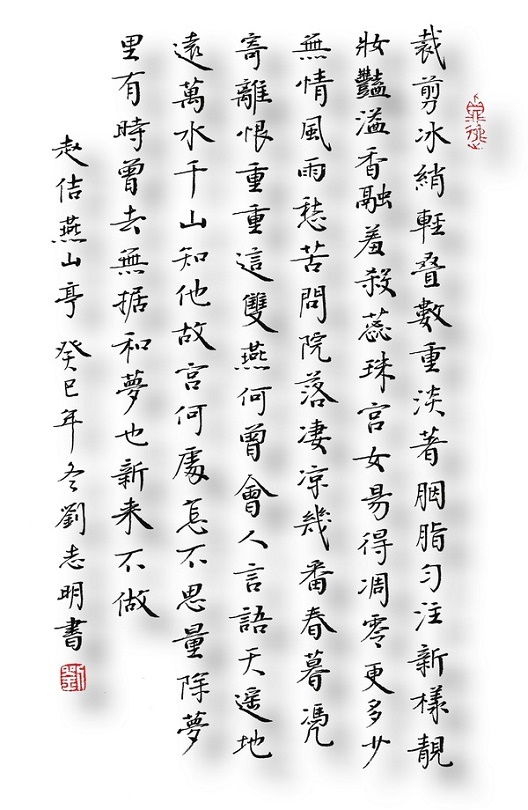 裁剪冰綃輕叠數重淡著胭脂匀注新樣靚
妝豔溢香融羞殺蕊珠宫女易得凋零更多少
無情風雨愁苦問院落凄凉幾番春暮凴
寄離恨重重這雙燕何曾會人言語天遥地
遠萬水千山知他故宫何處怎不思量除夢
里有時曾去無据和夢也新来不做
赵佶燕山亭 癸巳年冬劉志明書